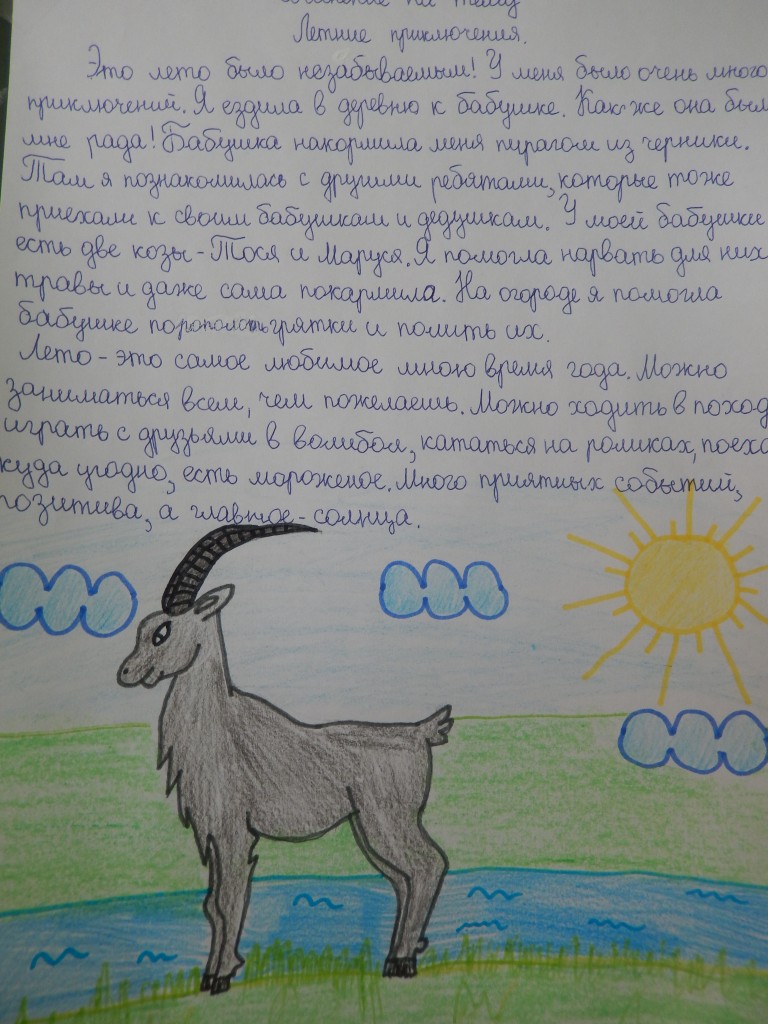 на тему
Летние приключения.
Это лето было незабываемым! У меня было очень много
приключений. Я ездила в деревню к бабушке. Как же она был
мне рада! Бабушка накормила меня пирагом из черники.
Там я познакомилась с другими ребятами, которые тоже
приехали к своим бабушкам и дедушкам. У моей бабушки
есть две козы - Тося и Маруся. Я помогла нарвать для них
травы и даже сама покармила. На огороде я помогла
бабушке грятки и полить их.
Лето - это самое любимое мною время года. Можно
заниматься всем, чем пожелаешь. Можно ходить в поход
играть с друзьями в волибол, кататься на роликах, поеха
куда угодно, есть мороженое. Много приятных событий,
позитива, а главное - солнца.